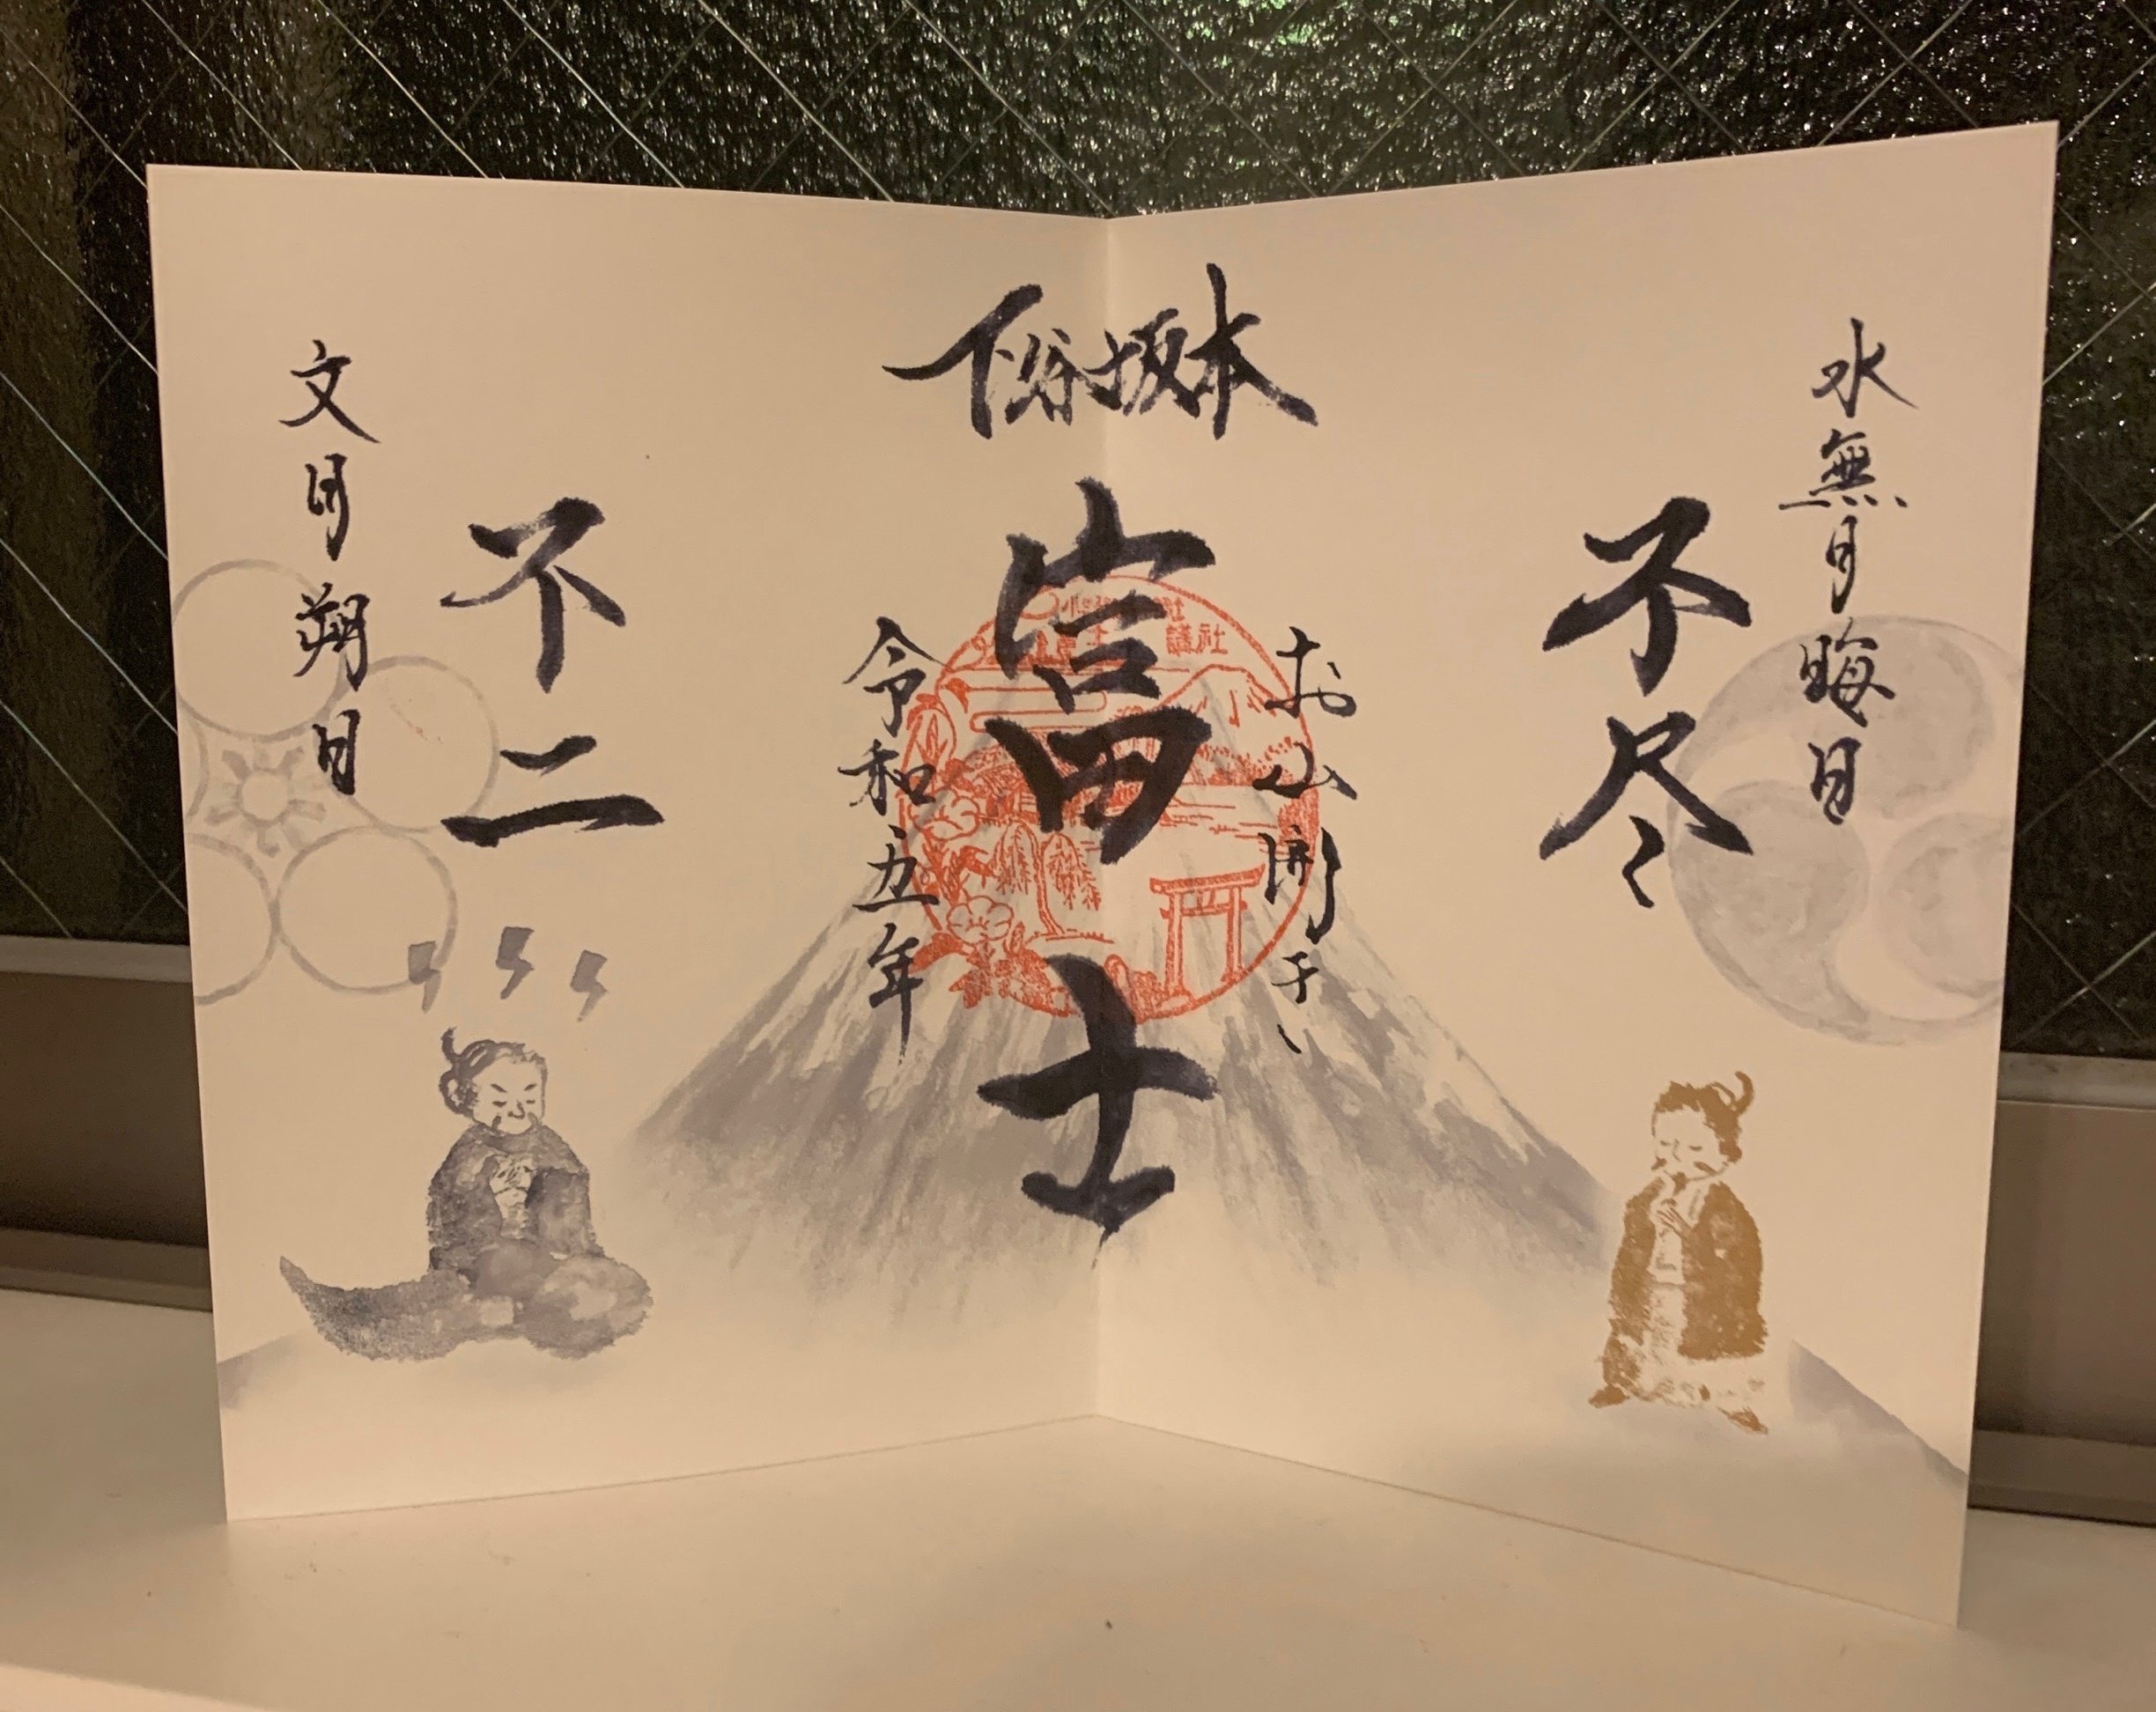 水無月晦日
不尽
お山開き
下谷坂本
富士
令和五年
不二
文月朔日
講社